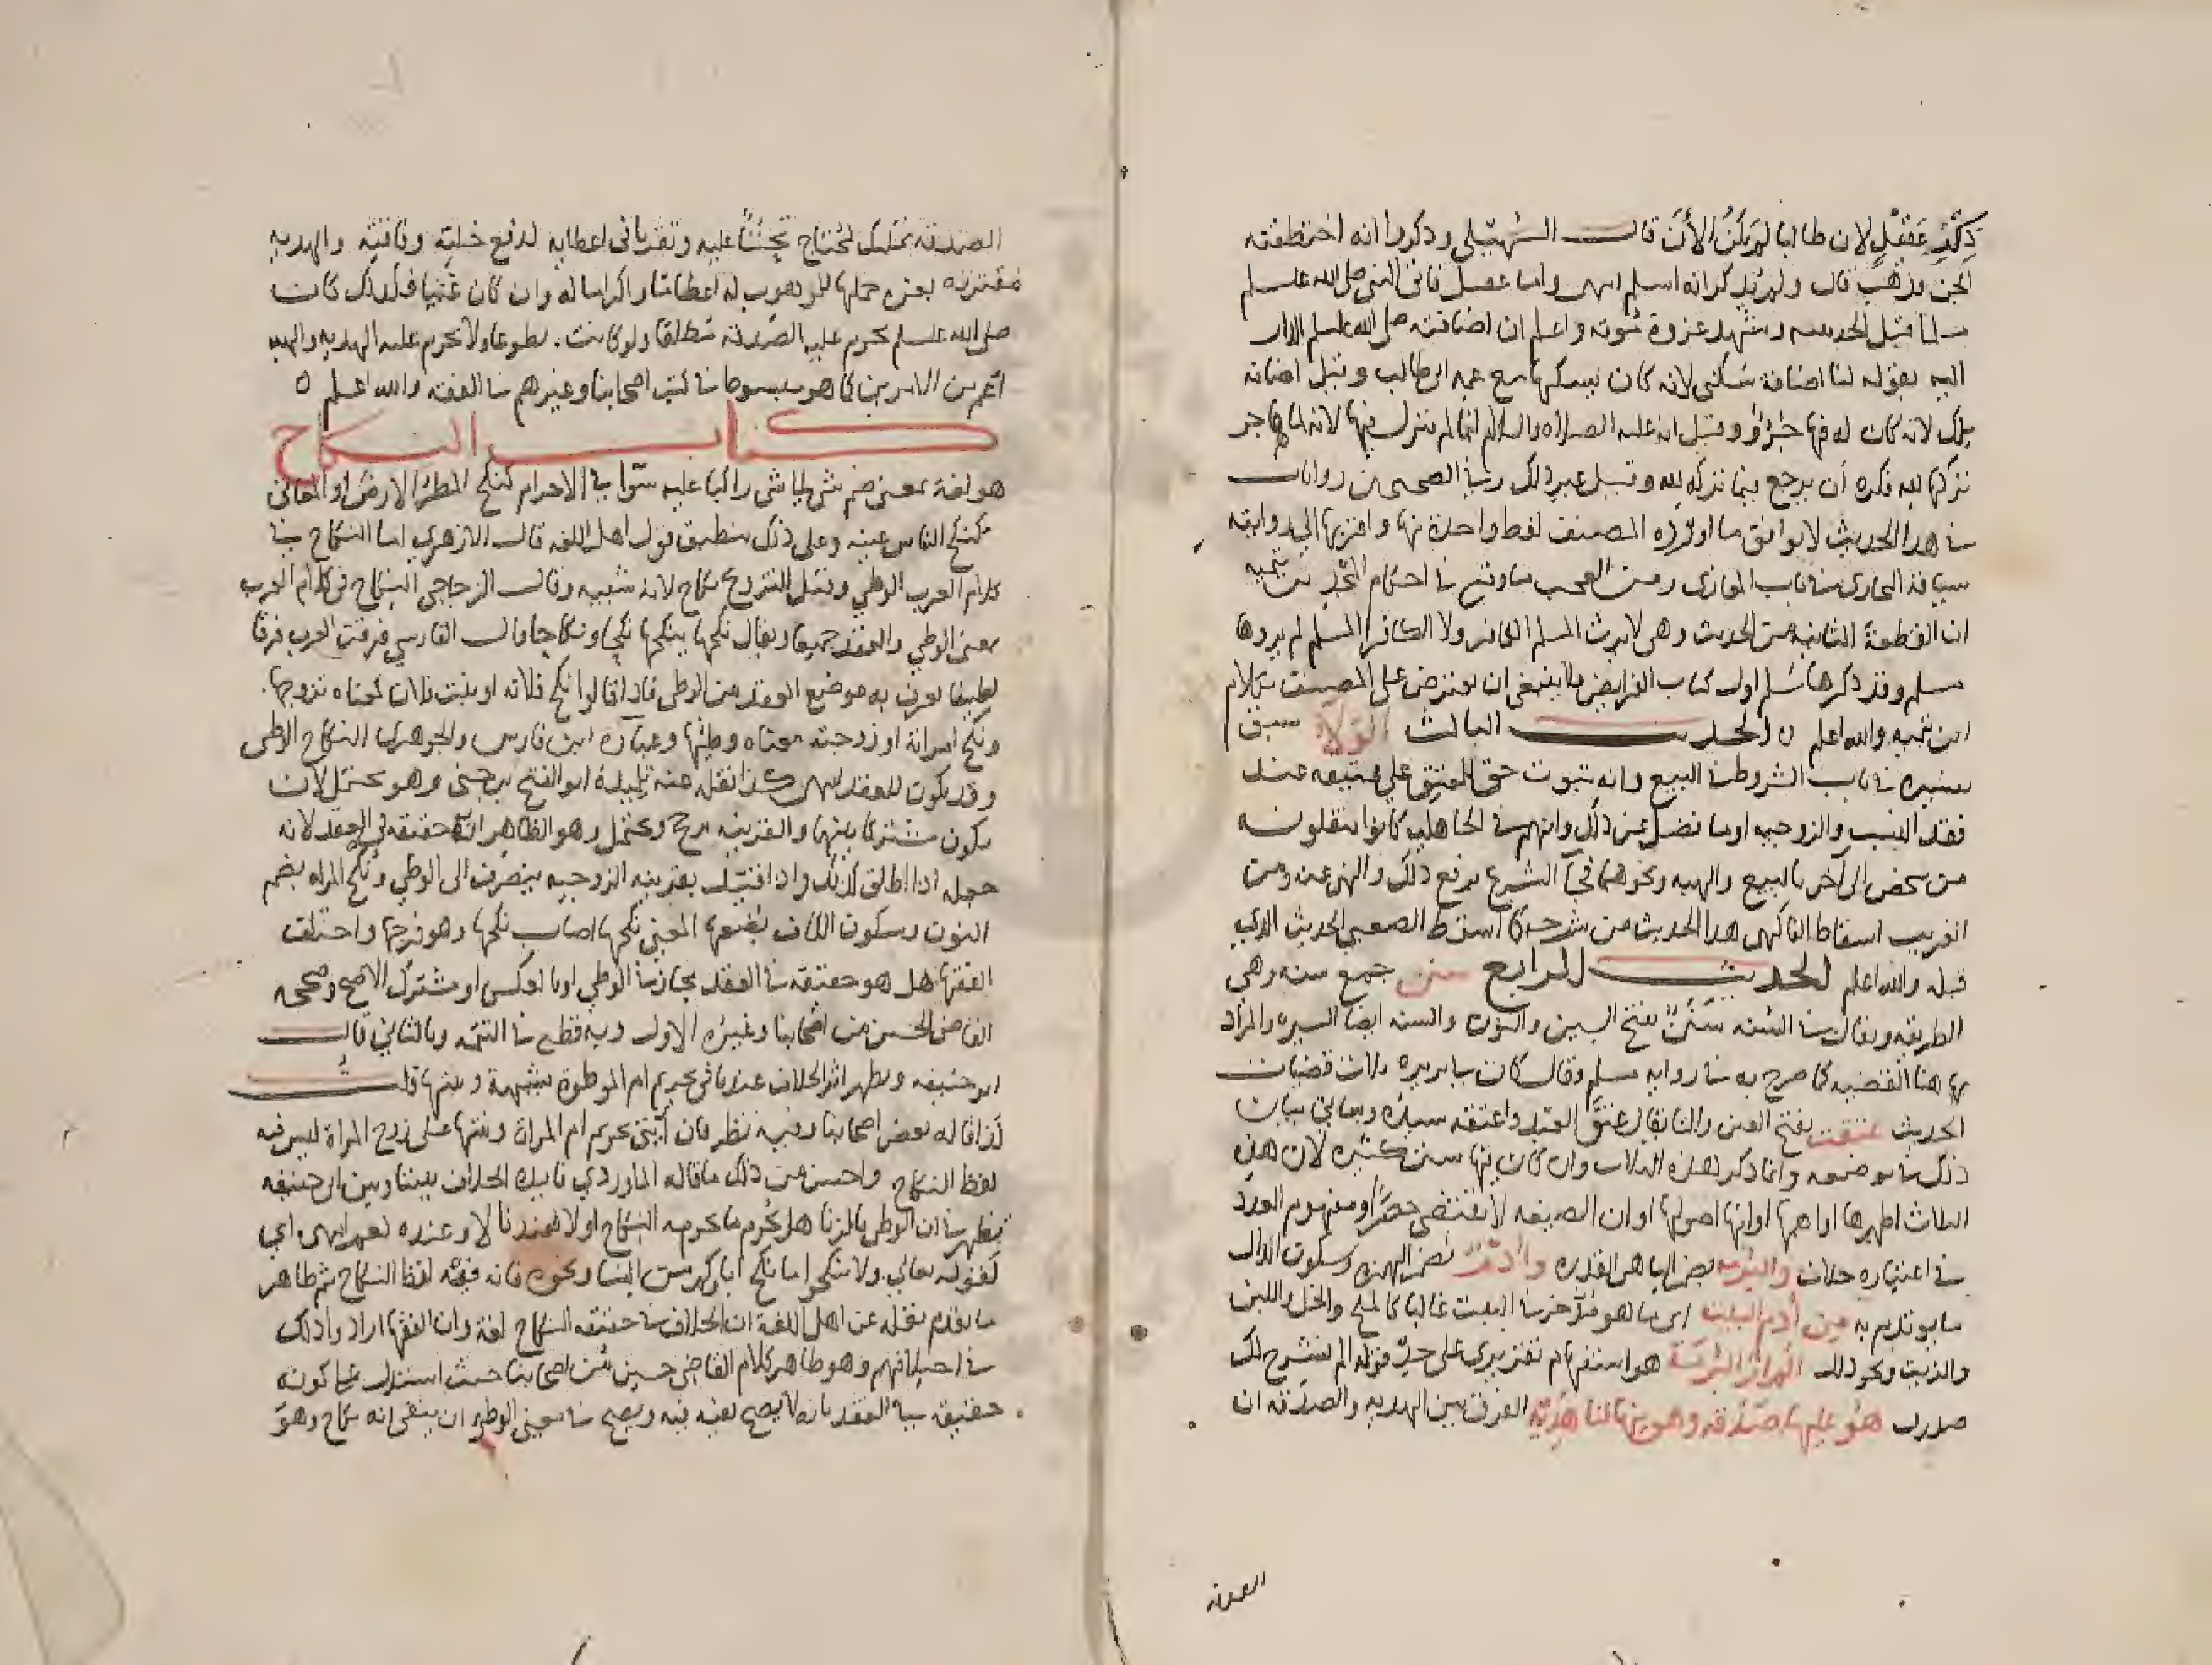 ذِكْرِ عَقِيْلٍ لان طالبا لم يَكنْ الاٰنَ قالـــ السُّهَيْلي وذكروا انه اختطفته
الجن فذهب قال ولم يذكر انه اسلم انتهى واما عقيل فاتى النبي صلى الله عليه وسلم
مسلما قبل الحديبيه وشهد غزوة موته واعلم ان اضافته صلى الله عليه وسلم الدار
اليه بقوله لنا اضافة سُكنى لانه كان يسكنها مع عمه ابي طالب وقيل اضافة
ملك لانه كان له فيها جُزْؤٌ وقيل انه عليه الصلاة والسلام انما لم ينزل فيها لانه لما هاجر
تركها لله فكره أن يرجع فيما تركه لله وقيل غير ذلك وفي الصحيحين روايات
في هدا الحديث لا يوافق ما اورده المصنف لفظ واحدة منها واقربها اليه روايته
سياقة البخاري في باب المغازي ومن العجب ما وقع في احكام المجد بن تيميه
ان القطعة الثانيه من الحديث وهي لا يرث المسلم الكافر ولا الكافر المسلم لم يروها
مسلم وقد ذكرها مسلم اول كتاب الفرايض فلا ينبغي ان يعترض على المصنف بكلام
ابن تيميه والله اعلم ٥ الحديــــث الثالث الوَلَاءُ سبق
تفسيره في باب الشروط في البيع وانه ثبوت حق للمعتِق على عتيقه عند
فقد النسب والزوجيه او ما فضل عن ذلك وانهم في الجاهليه كانوا ينقلونه
من شخص الى آخر بالبيع والهبه ونحوهما فجآ الشرع برفع ذلك والنهي عنه ومن
الغريب اسقاط الفاكهي هدا الحديث من شرحه كما اسقط الصعبي الحديث الذي
قبله والله اعلم الحديــــث الرابع سنن جمع سنه وهي
الطريقه ويقال في السنه سَنَنٌ بفتح السين والنون والسنه ايضا السيره والمراد
بها هنا القضيه كما صرح به في رواية مسلم وقال كان في بريره ثلاث قضيات
الحديث عتقت بفتح العين والتا يقال عتق العبد واعتقه سيده وسياتي بيان
ذلك في موضعه وانما ذكر هذه الثلاث وان كان فيها سنن كثيره لان هذه
الثلاث اظهرها او اهمها او انها اصولها او ان الصيغه لا تقتضي حصرًا ومفهوم العدد
في اعتباره خلاف والبُرمه بضم البا هي القدره وأُدْمٌ بضم الهمزه وسكون الدال
ما يوتدم به من أُدم البيت اي مما هو مدّخر في البيت غالبا كالملح والخل واللبن
والزيت ونحو ذلك الم ارَ البُرمَة هو استفهام تقريري على حدّ قوله الم نشرح لك
صدرك هُو عليها صَدَقه وهو منها لنا هَدِيّه الفرق بين الهديه والصدقه ان
الصدقه
الصدقه تمليك لمحتاج تَحنُّنًا عليه وتقربا في اعطايه لدفع خَلّته وفاقتِه والهديه
مقترنه بعزه حملها للموهوب له اعظاما واكراما له وان كان غنيا فلذلك كان
صلى الله عليه وسلم يحرم عليه الصدقه مُطلقا ولو كانت تطوعا ولا تحرم عليه الهديه والهبه
اعم من الامرين كما هو مبسوط في كتب اصحابنا وغيرهم في الفقه والله اعلم ٥
كتــــاب النكــاح
هو لغة بمعنى ضم شى لِما شى راكبا عليه سَوآ في الاجرام كنكح المطرُ الارضَ او المعاني
كنكح النعاس عينه وعلى ذلك ينطبق قول اهل اللغه قال الازهري اما النكاح في
كلام العرب الوطي وقيل للتزوج نكاح لانه سَببه وقالـــ الزجاجي النكاح في كلام العرب
بمعنى الوطي والعقد جميعا ويقال نكحها ينكحها نكحا ونكاحا وقال الفارسي فرقت العرب فرقا
لطيفا يعرف به موضع العقد من الوطي فاذا قالوا نكح فلانة او بنت فلان فمعناه تزوجها
ونكح امراته او زوجته معناه وطيها وعبارة ابن فارس والجوهري النكاح الوطي
وقد يكون للعقد انتهى كذا نقله عنه تلميذه ابو الفتح ابن جني وهو يحتمل لان
يكون مشتركا بينهما والقرينه ترجح ويحتمل وهو الظاهر انه حقيقة في العقد لانه
جعله اذا اطلق لذلك واذا اقتُرِن بقرينه الزوجيه ينصرف الى الوطي ونُكح المراه بضم
النون وسكون الكاف بُضعها المعنى نكحها اصاب نُكحها وهو فرجها واختلف
الفقها هل هو حقيقه في العقد مجاز في الوطي او بالعكس او مشترك الاصح وصححه
القاضي الحسين من اصحابنا وغيره الاول وبه قطع في التتمه وبالثاني قالـــ
ابو حنيفه ويظهر اثر الخلاف عندنا في تحريم ام الموطوة بشبهة وبنتها قلتُـــ
كذا قاله بعض اصحابنا وفيه نظر فان اُثبتَ تحريم ام المراة وبنتها على زوج المراة ليس فيه
لفظ النكاح واحسن من ذلك ما قاله الماوردي فايدة الخلاف بيننا وبين ابي حنيفه
تظهر في ان الوطي بالزنا هل يُحرم ما يحرمه النكاح او لا فعندنا لا وعنده نعم انتهى اي
لقوله تعالى ولا تنكحوا ما نكح اباوكم من النسا ونحوه فانه فيه لفظ النكاح ثم ظاهر
ما تقدم نقله عن اهل اللغة ان الخلاف في حقيقة النكاح لغة وان الفقها ارادوا ذلك
في اختلافهم وهو ظاهر كلام القاضي حسين من اصحابنا حيث استدل على كونه
حقيقة في العقد بانه لا يصح نفيه فيه ويصح في معنى الوطي ان ينفى انه نكاح وهو